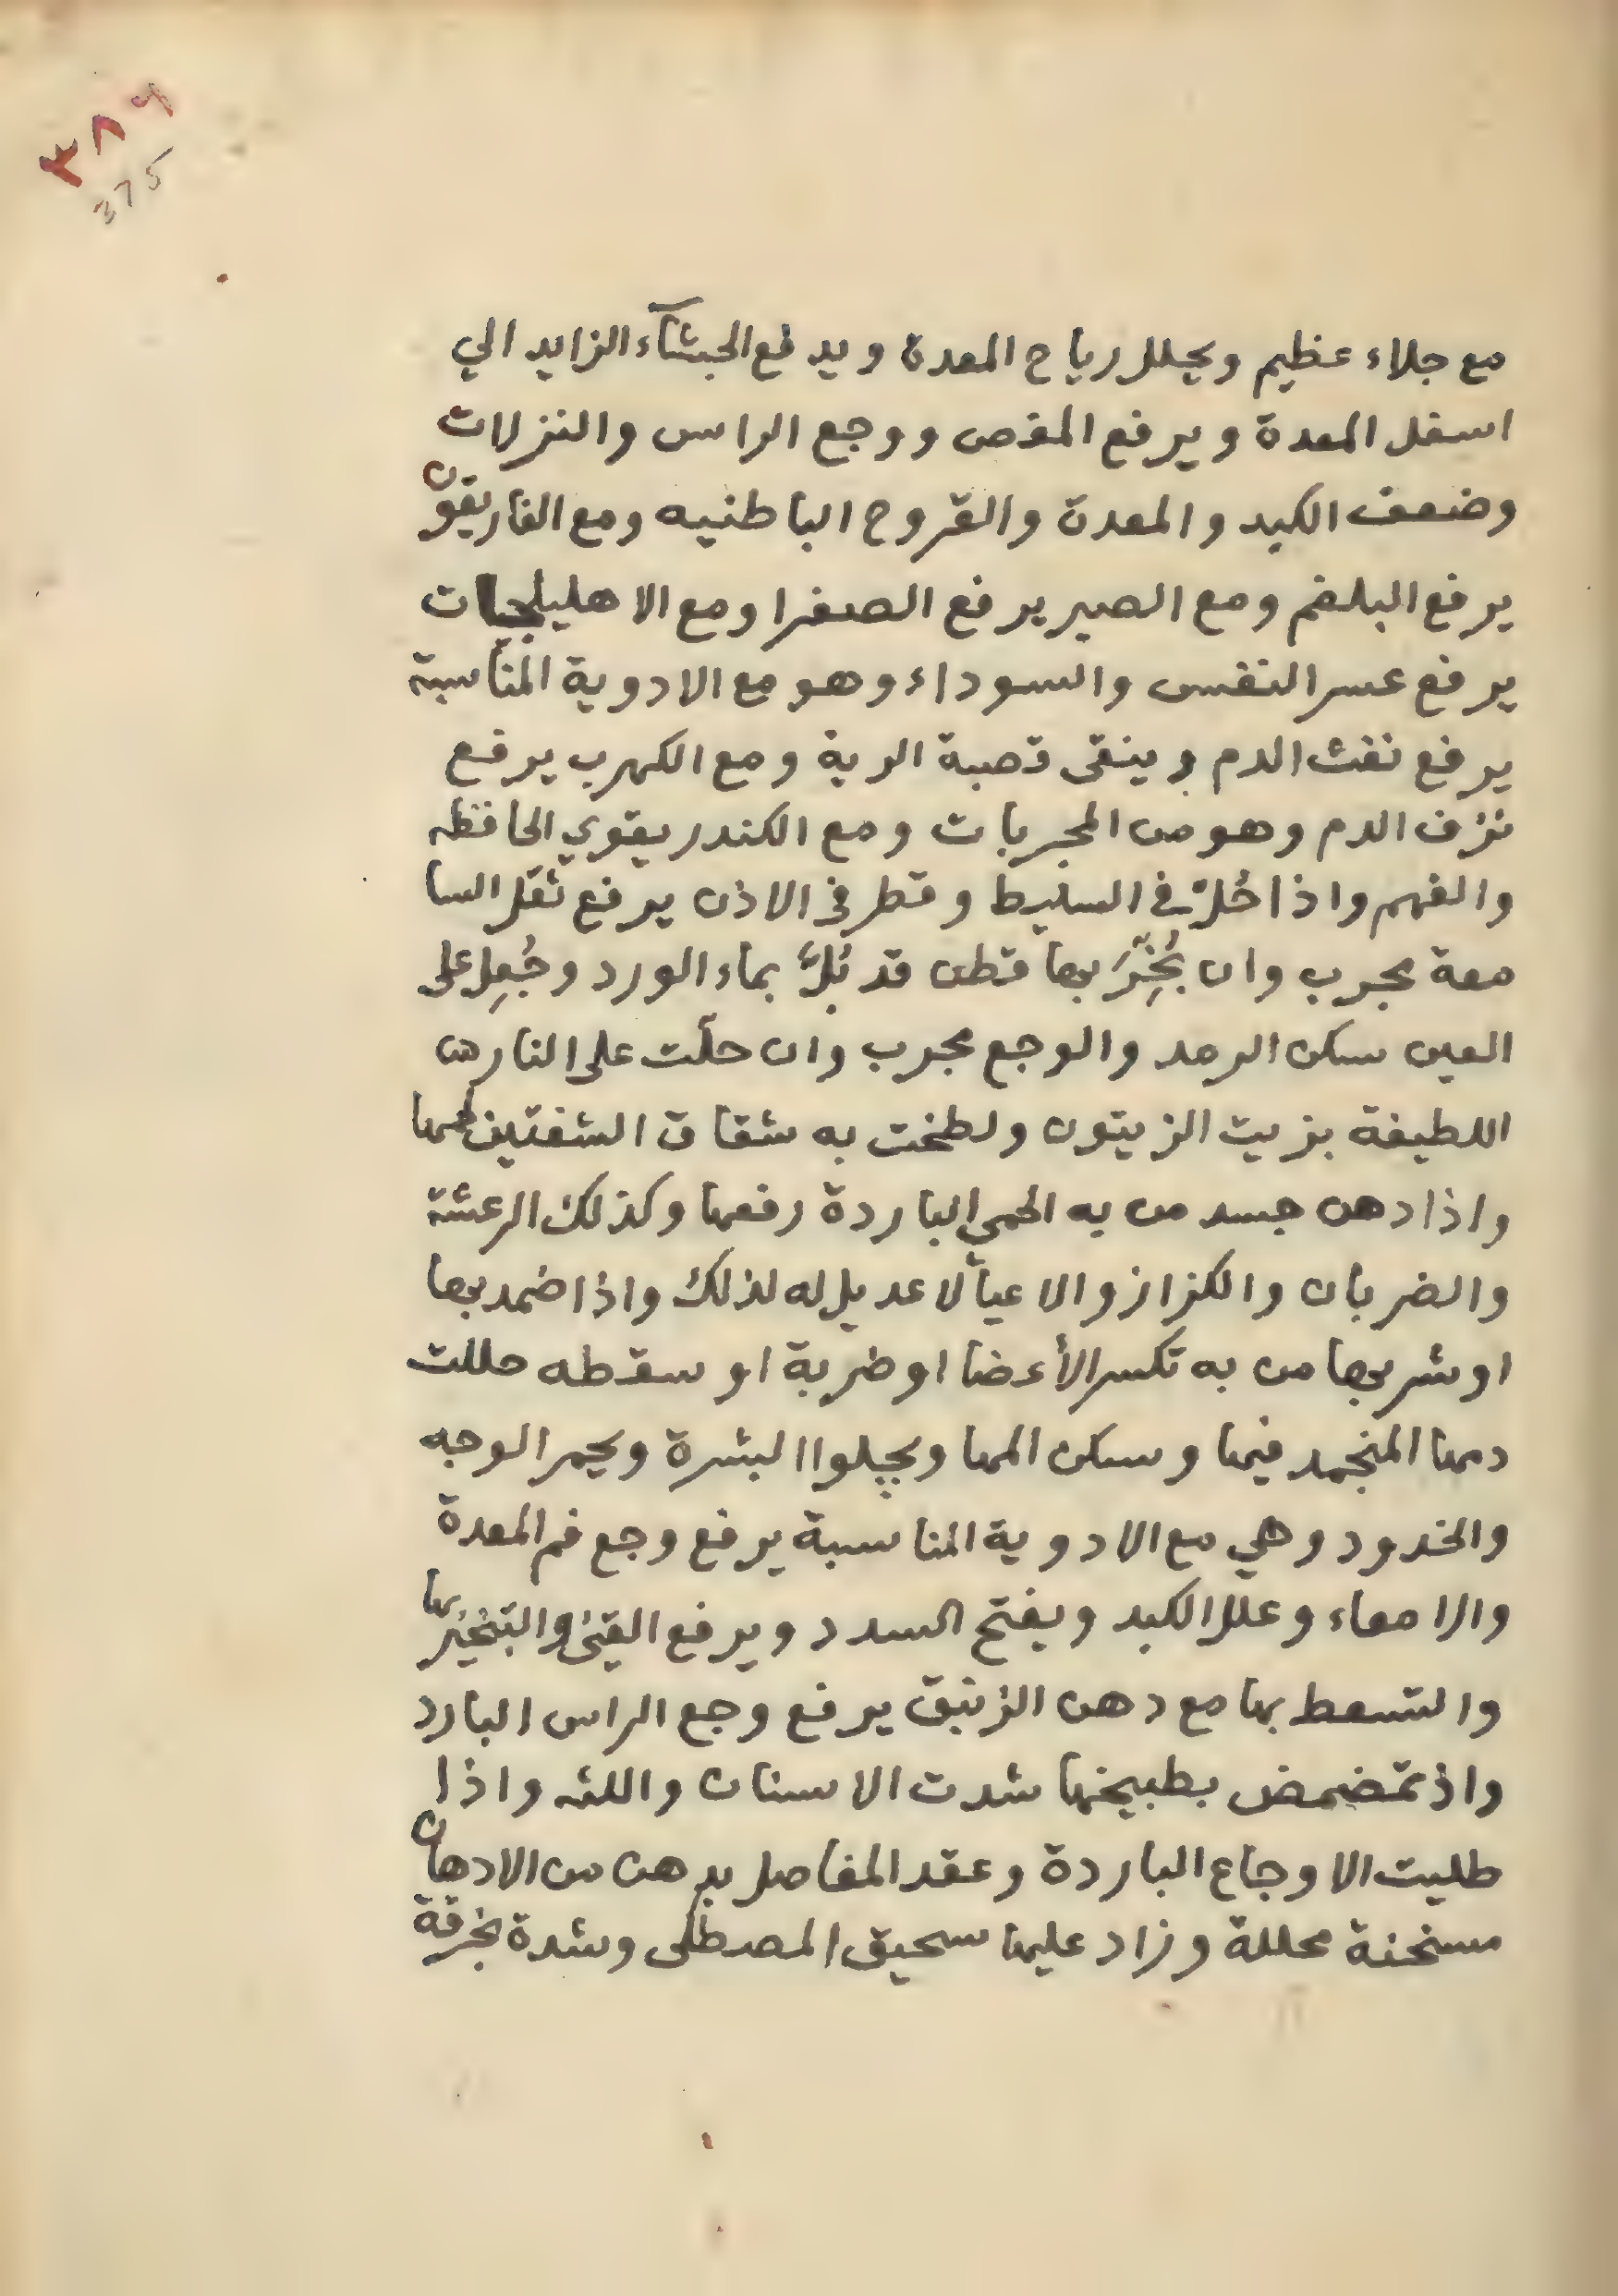 ٣٨٩
375
مع جلاء عظيم ويحلل رياح المعدة ويدفع الجشآء الزايد الي
اسفل المعدة ويرفع المغص ووجع الراس والنزلات
وضعف الكبد والمعدة والقروح الباطنيه ومع الغاريقون
يرفع البلغم ومع الصبر يرفع الصفرا ومع الاهليلجات
يرفع عسر النفس والسوداء وهو مع الادوية المناسبة
يرفع نفث الدم وينقى قصبة الرية ومع الكهرب يرفع
نزف الدم وهو من المجربات ومع الكندر يقوي الحافظه
والفهم واذا حُلّ في السليط وقطر في الاذن يرفع ثقل السا
معة مجرب وان بُخِّرَ بها قطن قد بُلَّ بماء الورد وجُعِل على
العين سكن الرمد والوجع مجرب وان حلّت على النار
اللطيفة بزيت الزيتون ولطخت به شقاق الشفتين
واذا دهن جسد من به الحمي الباردة رفعها وكذلك الرعشة
والضربان والكزاز والاعيا لا عديل له لذلك واذا ضمد بها
او شربها من به تكسر الأعضا او ضربة او سقطه حللت
دمها المنجمد فيها وسكن المها ويجلوا البشرة ويحمر الوجه
والخدود وهي مع الادوية المناسبة يرفع وجع فم المعدة
والامعاء وعلل الكبد ويفتح السدد ويرفع القيئ والتبخير بها
والتسعط بها مع دهن الزنبق يرفع وجع الراس البارد
واذ تمضمض بطبيخها شدت الاسنان واللثه واذا
طليت الاوجاع الباردة وعقد المفاصل بدهن من الادهان
مسخنة محللة وزاد عليها سحيق المصطكى وشدة بخرقة